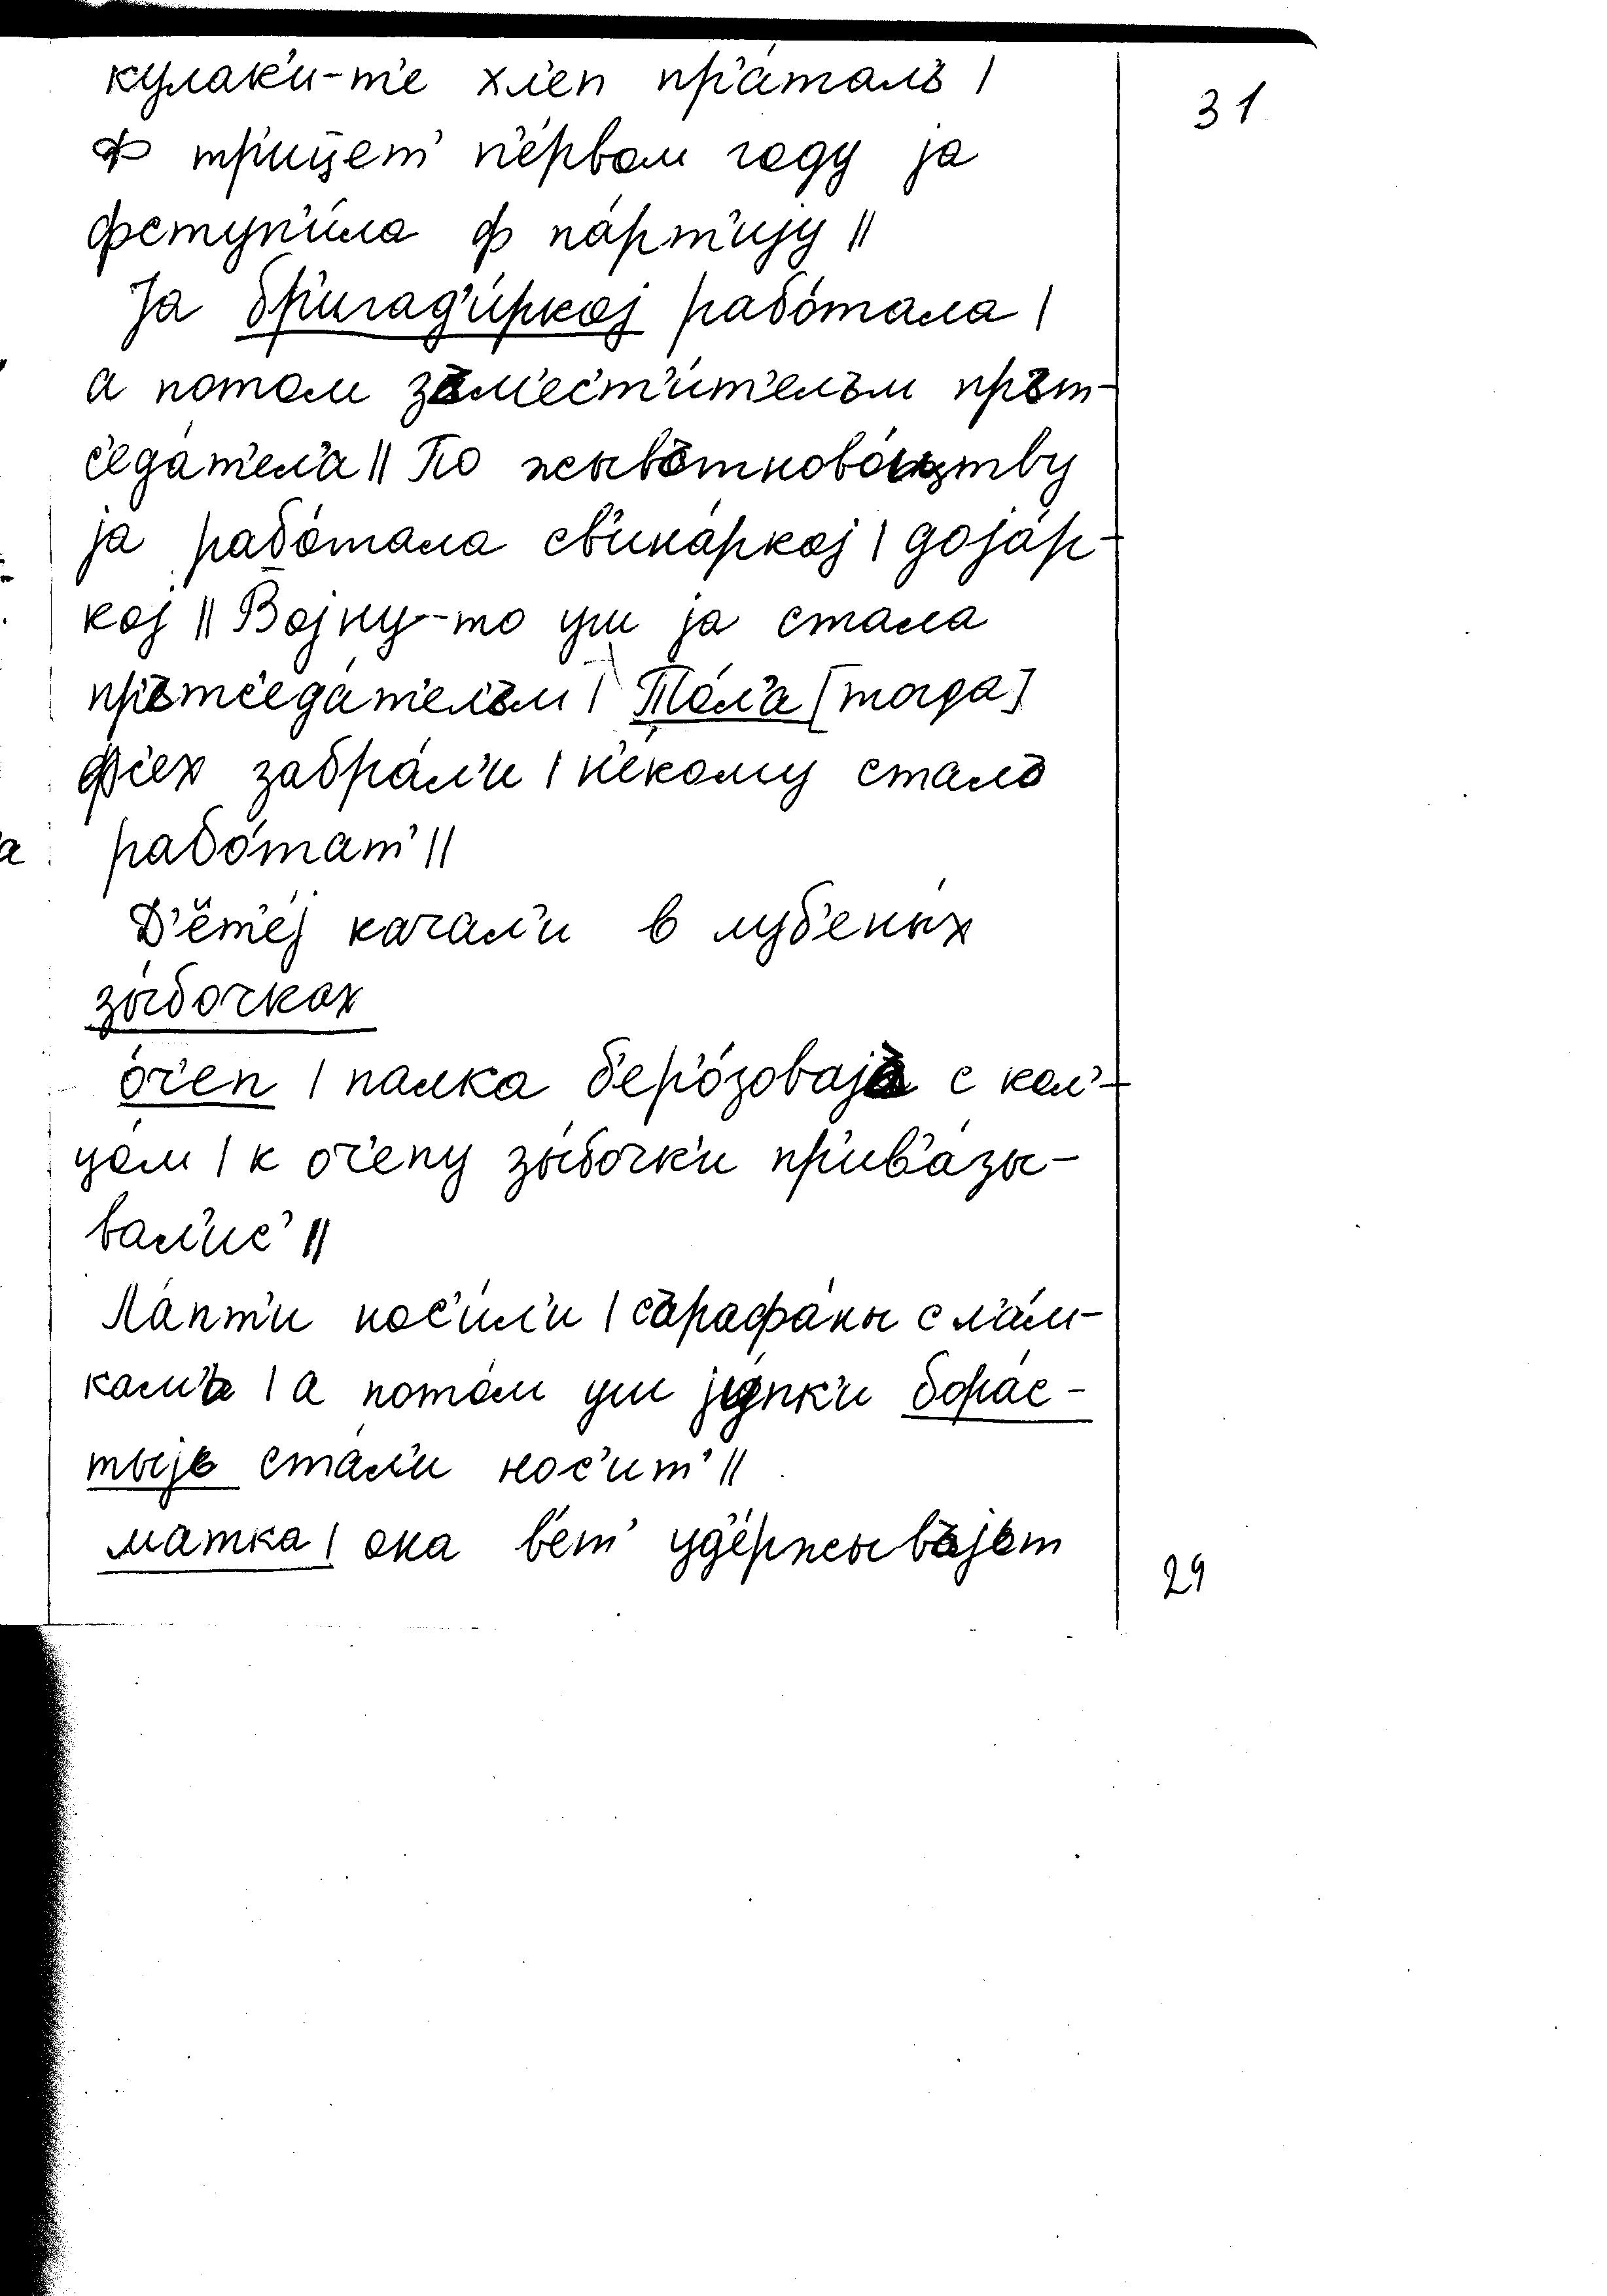 кулак'и-т'е хл'еп пр'а́тал'ъ |
31
Ф тр'иц̄ет' п'е́рвом году ja
фступ'и́ла ф па́рт'иjу ||
Ja бр'игад'и́ркоj рабо́тала |
а потом зъм'ес'т'и́т'ел'ъм пр'ът-
с'еда́т'ел'а || По жывътново́цтву
ja рабо́тала св'ина́ркоj | доjа́р-
коj || Воjну-то уш ja стала
пр'ътс'еда́т'ел'ъм | То́л'а [тогда]
ф'с'ех забра́л'и | н'е́кому стало
рабо́тат' ||
Д'ет'е́j качал'и в луб'ены́х
зы́бочках
о́ч'еп | палка б'ер'о́зоваjъ с кол'-
цо́м | к оч'епу зы́бочк'и пр'ив'а́зы-
вал'ис' ||
Ла́пт'и нос'и́л'и | сърафа́ны с л'а́м-
кам'ъ | а пото́м уш jу́пк'и бора́с-
тыjь ста́л'и нос'ит' ||
матка | она в'ет' уд'е́ржывъjьт
29